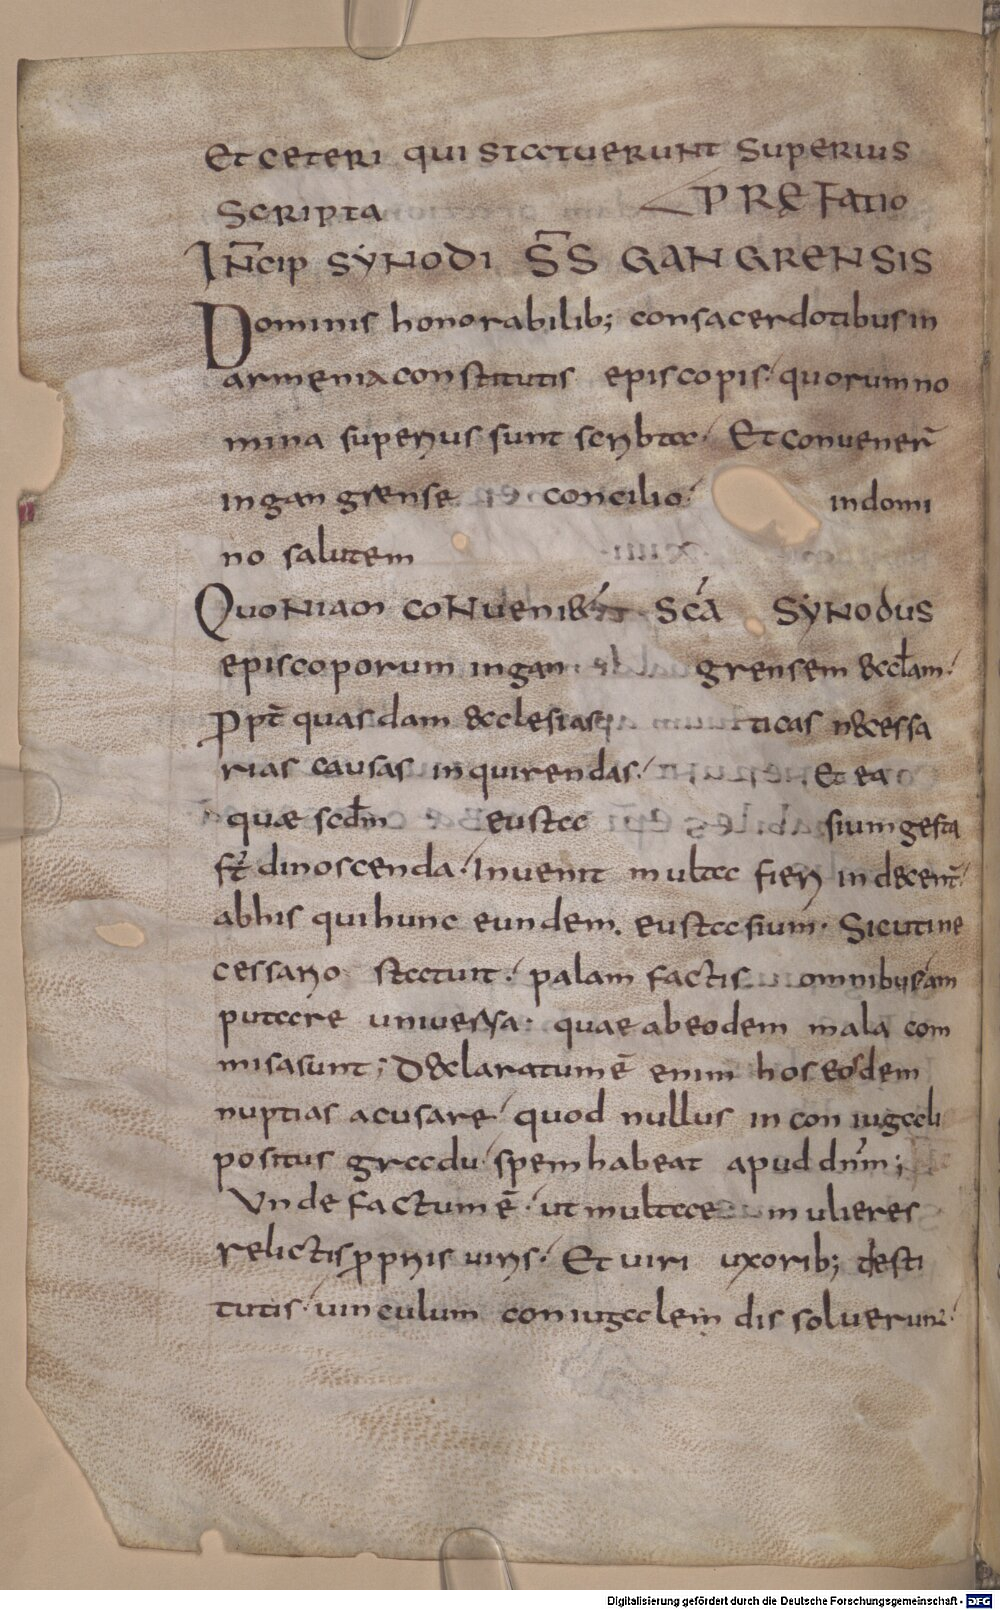 Et ceteri qui statuerunt superius
scripta PRęFatio
INc̄ip SYNODI S̄S GANGRENSIS
Dominis honorabilib; consacerdotibus in
armenia constitutis episcopis· quorum no
mina superius sunt scribta· Et conuener̄
in gangrense concilio· in domi
no salutem
QuoNiam coNuenien̄s Sc̄a SYNodus
episcoporum in gan grensem eccl̄am·
Ppt̄ quasdam ecclesias ticas necessa
rias causas inquirendas· Et ea
quae scd̄m eusta sium gesta
st̄ dinoscenda· Inuenit multa fieri indecent̄·
abhis qui hunc eundem. eustasium· Sicuti ne
cessario statuit· palam factis omnibus am
putare uniuersa· quae ab eodem mala com
misa sunt; Declaratum ē enim hos eosdem
nuptias acusare· quod nullus in coniugali
positus gradu spem habeat apud dn̄m;
Unde factum ē· ut multae mulieres
relictis propriis uiris· Et uiri uxorib; desti
tutis· uinculum coniugalem dissoluerunt·
Digitalisierung gefördert durch die Deutsche Forschungsgemeinschaft - DFG